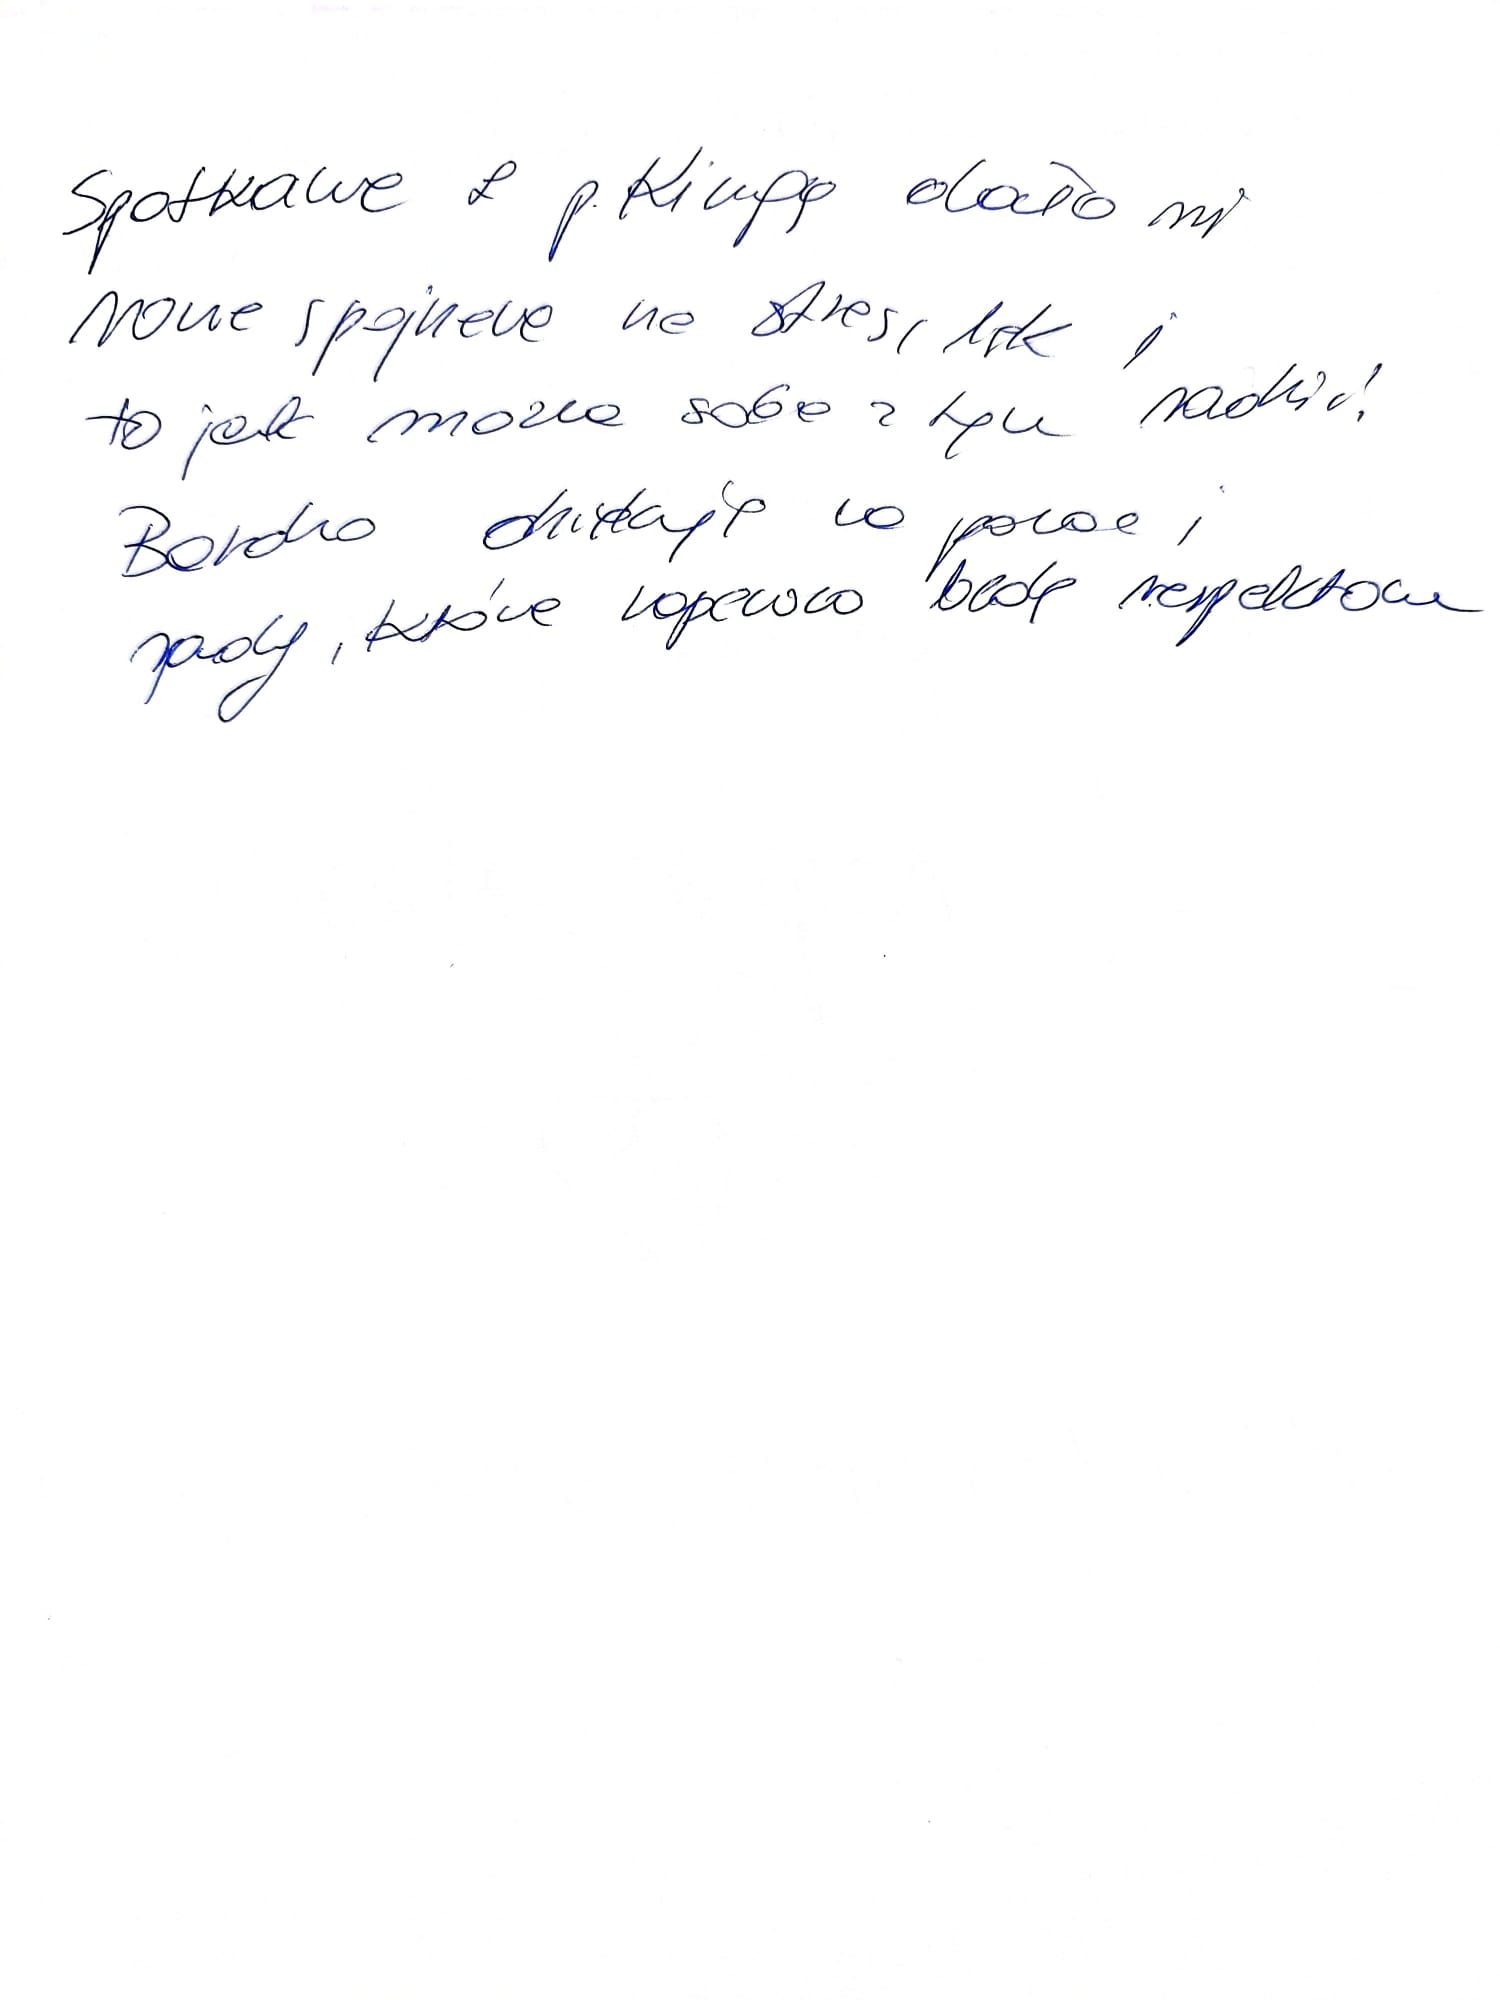 Spotkanie z p. Kingą dało mi
nowe spojrzenie na stres, lęk i
to jak można sobie z tym radzić!
Bardzo dziękuję za pomoc i
rady, które na pewno będę respektować